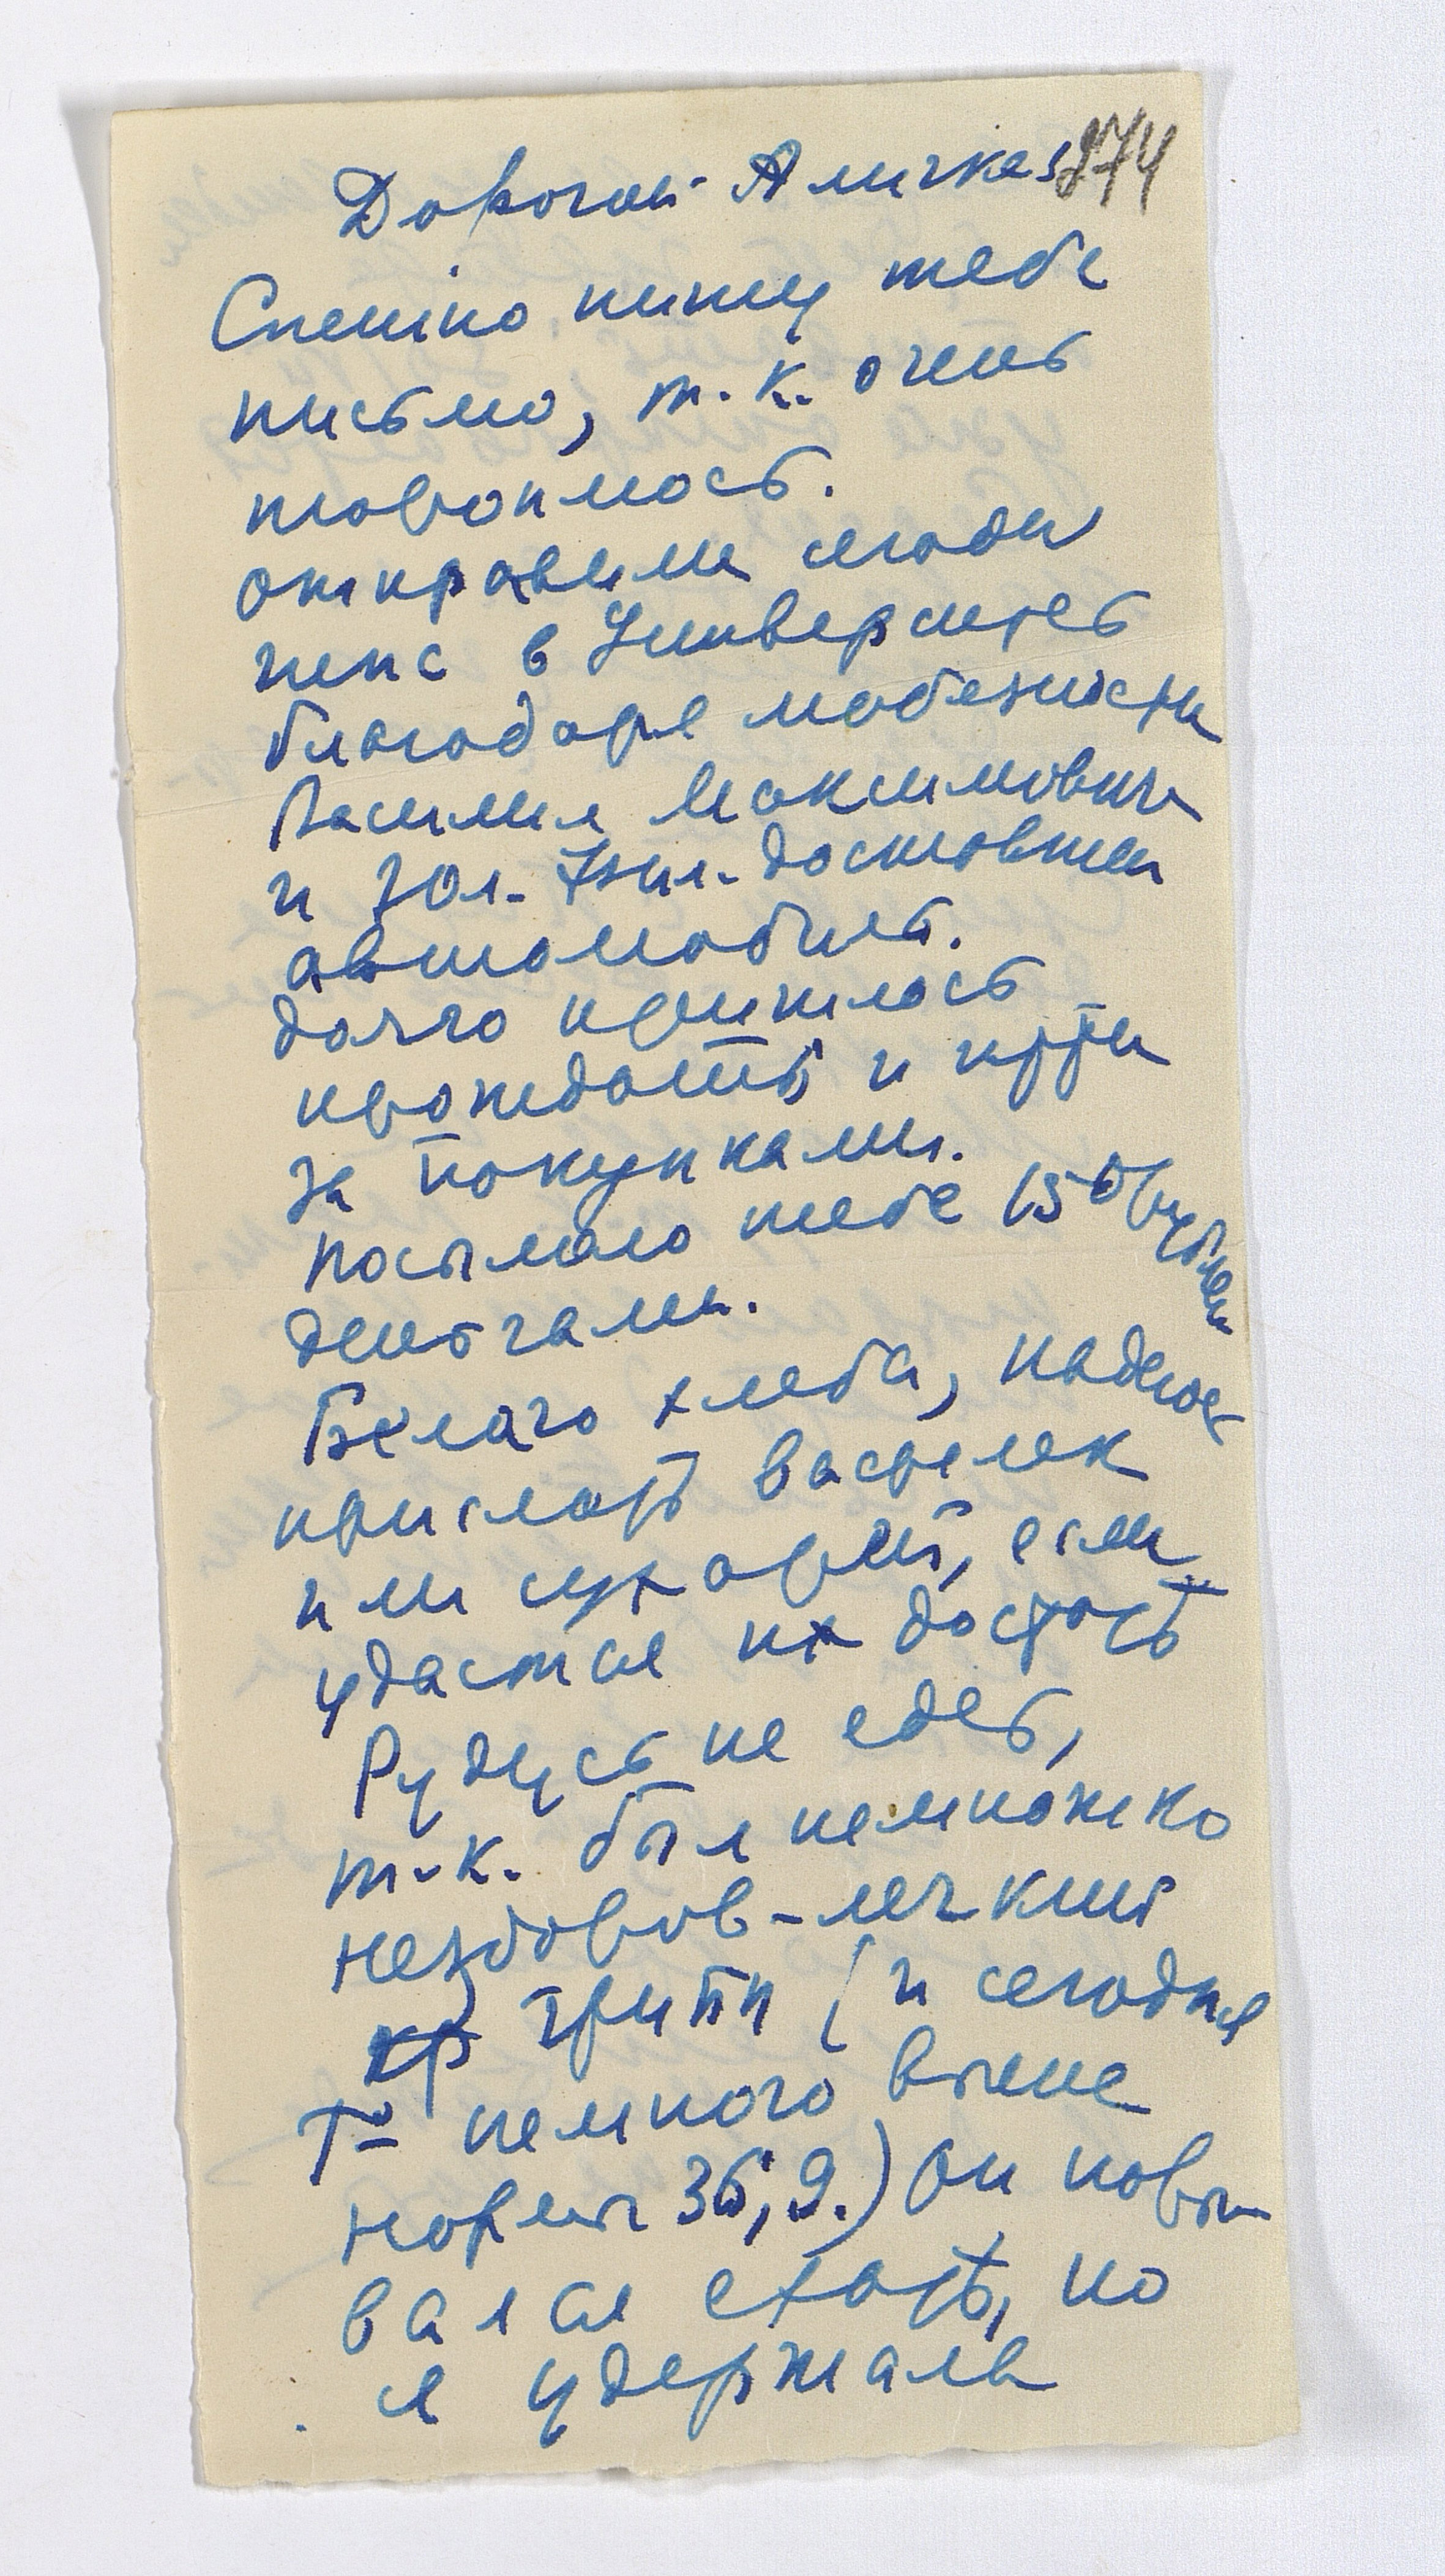 Дорогой Аличка! 274
Спешно пишу тебе
письмо, т.к. очень
торопилось.
отправили сегодня
гипс в Университет
благодаря любезности
Василия Максимовича
и доставившей
автомобиль.
долго пришлось
прождать и идти
за покупками.
посылаю тебе 150 рублей
деньгами.
Белаго хлеба, надеюсь
прислать
или сухарей, если
удастся их достать
Рудусь не едет,
т.к. был немножко
нездоров - легкий
грипп (и сегодня
Т° немного выше
нормы 36,9.) Он поры-
вался ехать, но
я удержала